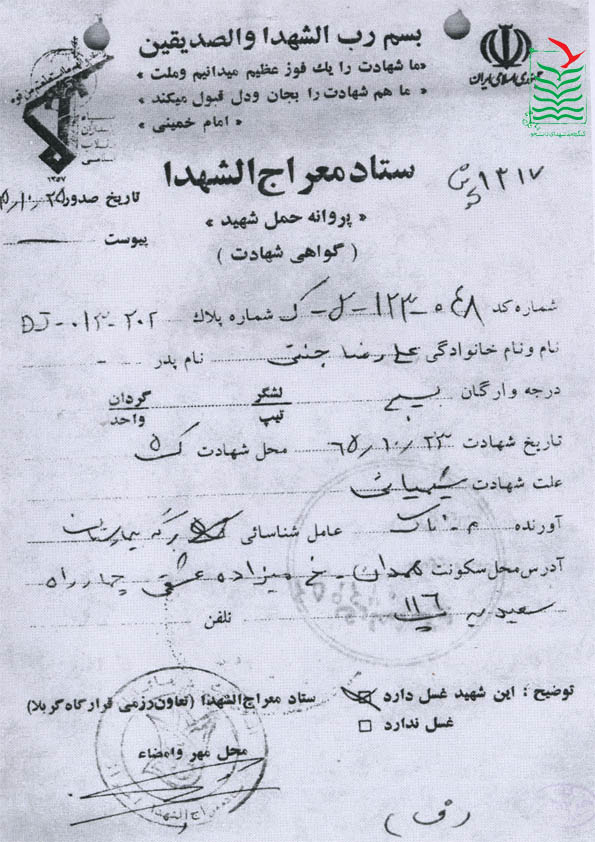 بسم رب الشهدا والصدیقین
«ما شهادت را یك فوز عظیم میدانیم وملت»
«ما هم شهادت را بجان ودل قبول میکند»
«امام خمینی»
جمهوری اسلامی ایران
سپاه
پاسداران
انقلاب
اسلامی
۱۳۵۷
ستاد معراج الشهدا
۱۳۱۷
تاریخ صدور ۶۵٫۱۰٫۲۵
«پروانه حمل شهید»
پیوست
(گواهی شهادت)
شماره کد ۰۴۸-۱۲۳-ل-ک شماره پلاك DJ-۰۱۳-۲۰۲
نام ونام خانوادگی علیرضا جنتی نام پدر -
درجه وارگان بسیجی لشگر تیپ گردان واحد
تاریخ شهادت ۶۵٫۱۰٫۲۳ محل شهادت ک ۵
علت شهادت شیمیائی
آورنده م-باک عامل شناسائی برگه بیمارستان
آدرس محل سکونت همدان-خ میرزاده عشقی چهارراه
سعیدیه پ ۱۱۶ تلفن
توضیح : این شهید غسل دارد ستاد معراج الشهدا (تعاون رزمی قرارگاه کربلا)
غسل ندارد
محل مهر وامضاء